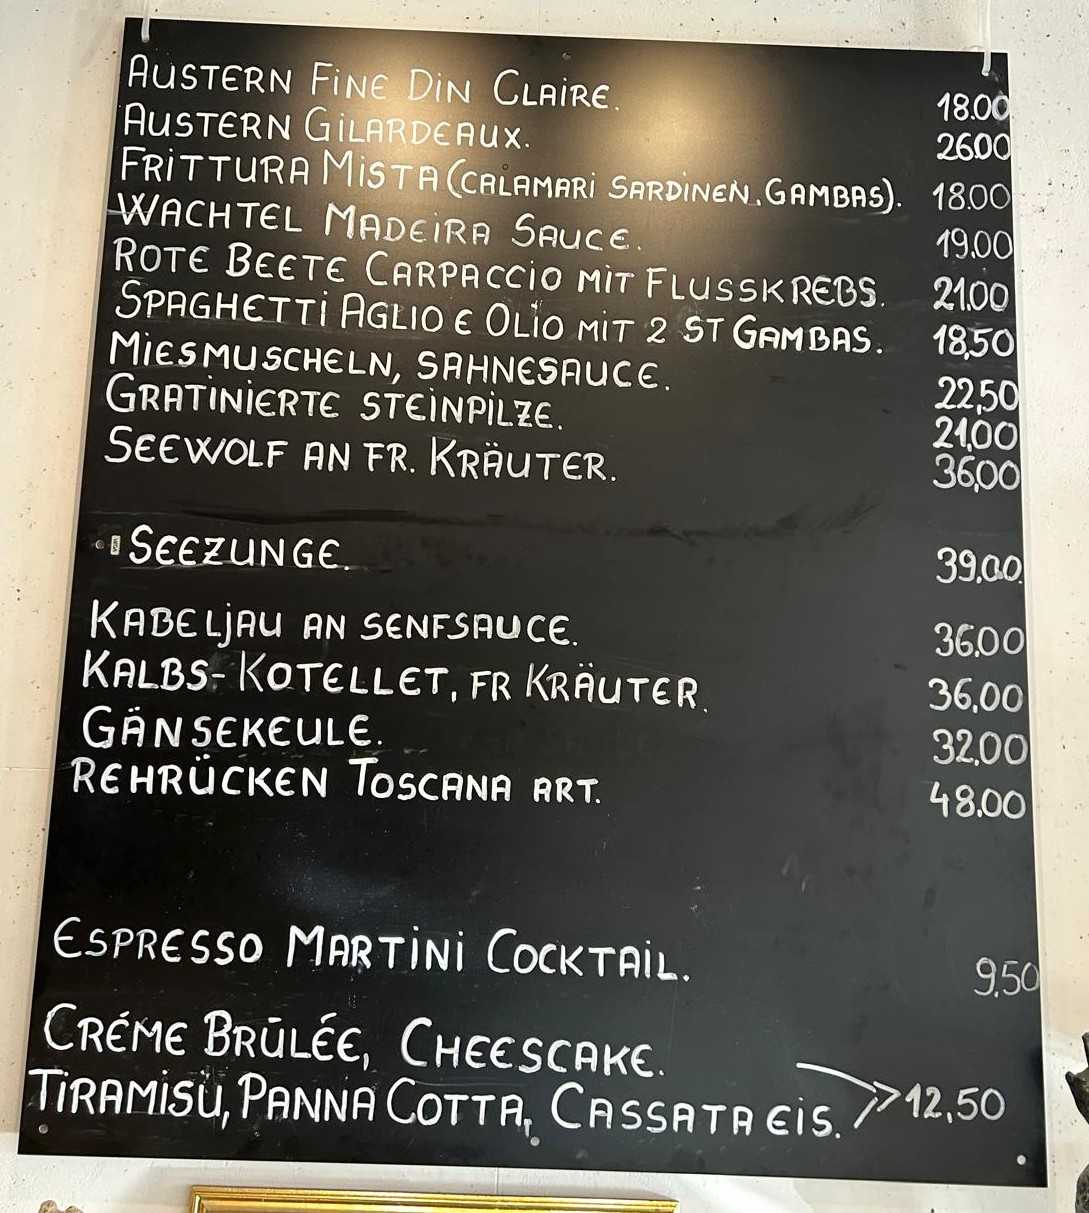 AUSTERN FINE DIN CLAIRE. 18.00
AUSTERN GILARDEAUX. 26.00
FRITTURA MISTA (CALAMARI SARDINEN, GAMBAS). 18.00
WACHTEL MADEIRA SAUCE. 19.00
ROTE BEETE CARPACCIO MIT FLUSSKREBS. 21.00
SPAGHETTI AGLIO E OLIO MIT 2 ST GAMBAS. 18,50
MIESMUSCHELN, SAHNESAUCE. 22,50
GRATINIERTE STEINPILZE. 21,00
SEEWOLF AN FR. KRÄUTER. 36,00
SEEZUNGE. 39,00.
KABELJAU AN SENFSAUCE. 36,00
KALBS-KOTELLET, FR KRÄUTER. 36,00
GÄNSEKEULE. 32,00
REHRÜCKEN TOSCANA ART. 48.00
ESPRESSO MARTINI COCKTAIL. 9,50
CRÉME BRŪLÉE, CHEESCAKE.
TIRAMISÙ, PANNA COTTA, CASSATA EIS. 12,50